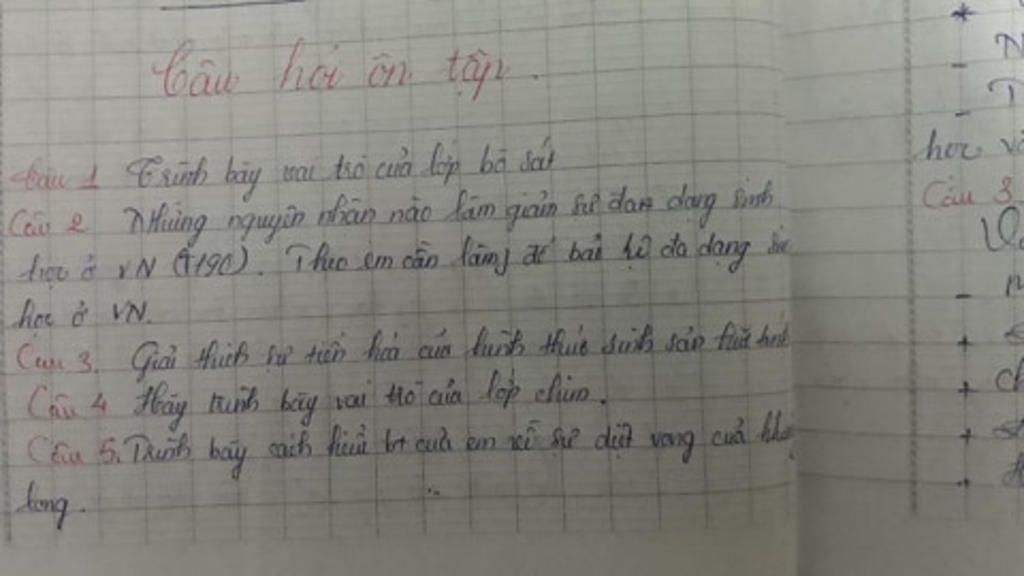 Câu hỏi ôn tập.
Câu 1 Trình bày vai trò của lớp bò sát
Câu 2 Những nguyên nhân nào làm giảm sự đa dạng sinh
học ở VN (T190). Theo em cần làm gì để bảo vệ đa dạng
học ở VN.
Câu 3. Giải thích sự tiến hoá của hình thức sinh sản hữu tính
Câu 4 Hãy trình bày vai trò của lớp chim.
Câu 5. Trình bày cách hiểu bt của em về sự diệt vong của
long.
học
Câu 3